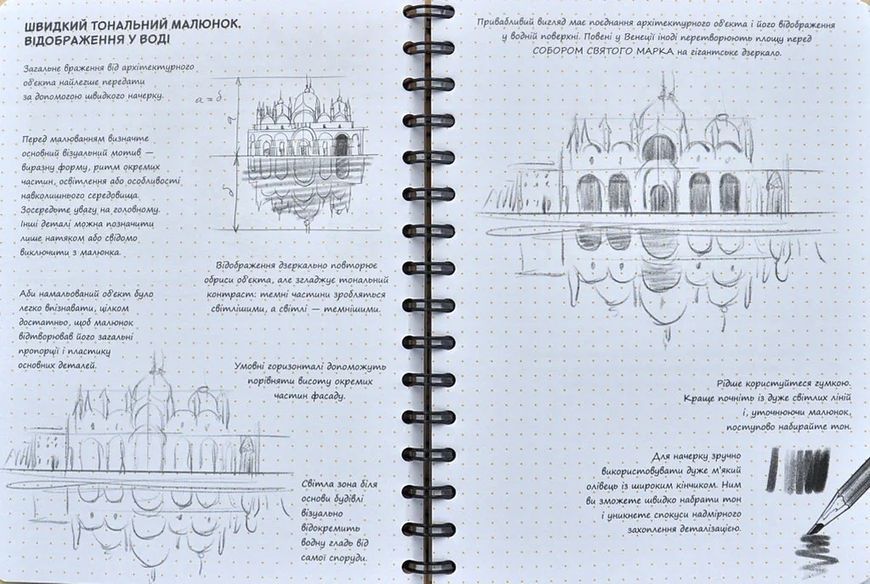 ШВИДКИЙ ТОНАЛЬНИЙ МАЛЮНОК.
ВІДОБРАЖЕННЯ У ВОДІ
Загальне враження від архітектурного
об'єкта найлегше передати
за допомогою швидкого начерку.
a = б.
а
б
Перед малюванням визначте
основний візуальний мотив —
виразну форму, ритм окремих
частин, освітлення або особливості
навколишнього середовища.
Зосередьте увагу на головному.
Інші деталі можна позначити
лише натяком або свідомо
виключити з малюнка.
Відображення дзеркально повторює
обриси об'єкта, але згладжує тональний
контраст: темні частини зробляться
світлішими, а світлі — темнішими.
Аби намальований об'єкт було
легко впізнавати, цілком
достатньо, щоб малюнок
відтворював його загальні
пропорції і пластику
основних деталей.
Умовні горизонталі допоможуть
порівняти висоту окремих
частин фасаду.
Світла зона біля
основи будівлі
візуально
відокремить
водну гладь від
самої споруди.
Привабливий вигляд має поєднання архітектурного об'єкта і його відображення
у водній поверхні. Повені у Венеції іноді перетворюють площу перед
СОБОРОМ СВЯТОГО МАРКА на гігантське дзеркало.
Рідше користуйтеся гумкою.
Краще почніть із дуже світлих ліній
і, уточнюючи малюнок,
поступово набирайте тон.
Для начерку зручно
використовувати дуже м'який
олівець із широким кінчиком. Ним
ви зможете швидко набрати тон
і уникнете спокуси надмірного
захоплення деталізацією.